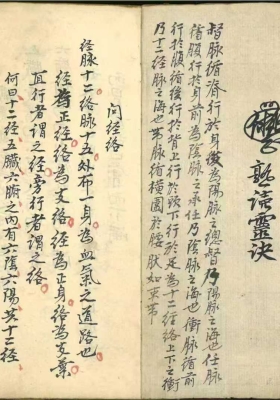 靈訣
督脉循行於身後為陽脉之總督乃陽脉之海也任脉
循腹行於身前為陰脉之承任乃陰脉之海也衝脉循前
行於腹循後行於背上行於下行於足為十二经络上下之衝
乃十二经脉之海也帶脉循橫圍於腰狀如束帶
問经络
經脉十二络脉十五外布一身為血氣之道路也
经為正经络為支络经為正身络為支葉
直行者謂之经旁行者謂之络
何曰十二经五臟六腑之內有六陰六陽共十二經